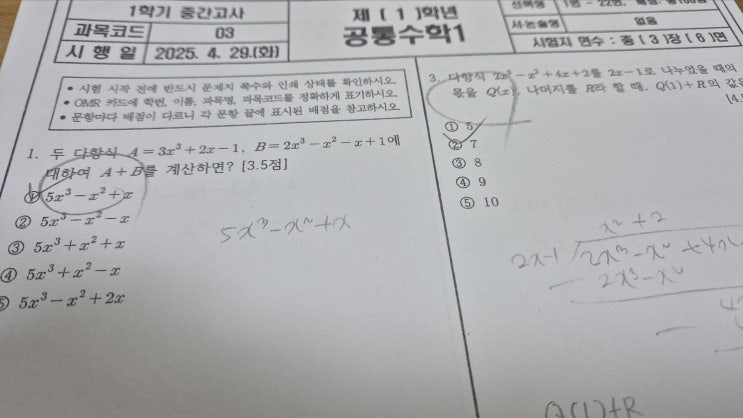 1학기 중간고사
과목코드 03
시 행 일 2025. 4. 29.(화)
제 ( 1 )학년
공통수학1
선택형 1번 - 22번
서·논술형 없음
시험지 면수 : 총 ( 3 )장 ( 6 )면
• 시험 시작 전에 반드시 문제지 쪽수와 인쇄 상태를 확인하시오.
• OMR 카드에 학번, 이름, 과목명, 과목코드를 정확하게 표기하시오.
• 문항마다 배점이 다르니 각 문항 끝에 표시된 배점을 참고하시오.
1. 두 다항식 A = 3x³ + 2x - 1, B = 2x³ - x² - x + 1에
대하여 A + B를 계산하면? [3.5점]
① 5x³ - x² + x
② 5x³ - x² - x
③ 5x³ + x² + x
④ 5x³ + x² - x
⑤ 5x³ - x² + 2x
5x³ - x² + x
3. 다항식 2x³ - x² + 4x + 2를 2x - 1로 나누었을 때의
몫을 Q(x), 나머지를 R라 할 때, Q(1) + R의 값은
① 5
② 7
③ 8
④ 9
⑤ 10
x² + 2
2x-1 2x³ - x² + 4x
2x³ - x²
Q(1)+R